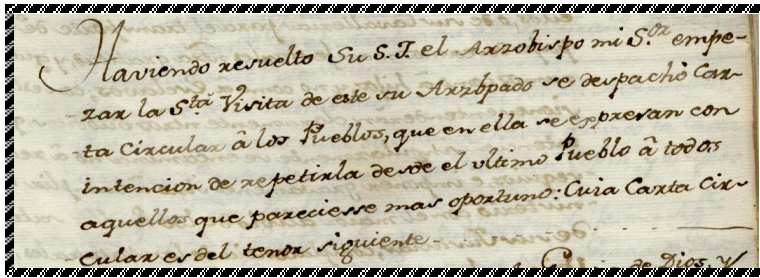 Haviendo resuelto Su S. I. el Arzobispo mi S.or empe-
zar la S.ta Visita de este su Arzbpado se despachò Car-
ta Circular â los Pueblos, que en ella se expresan con
intencion de repetirla desde el ultimo Pueblo â todos
aquellos que pareciesse mas oportuno: Cuia Carta Cir-
cular es del tenor siguiente
de Dios, y